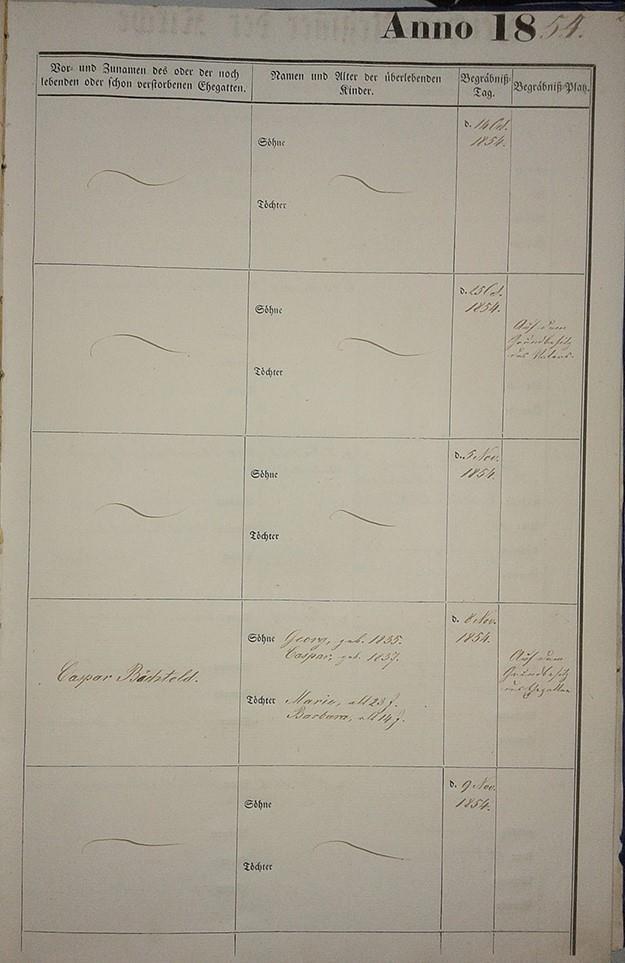 Anno 1854.
Vor- und Zunamen des oder der noch
lebenden oder schon verstorbenen Ehegatten.
Namen und Alter der überlebenden
Kinder.
Begräbniß-
Tag.
Begräbniß-Platz.
Söhne
Töchter
d. 14 Oct.
1854.
Söhne
Töchter
d. 25 Oct.
1854.
Auf dem
Grundbesitz
des Vaters.
Söhne
Töchter
d. 5 Nov.
1854.
Caspar Bächtold.
Söhne Georg, geb. 1835.
Caspar, geb. 1837.
Töchter Marie, alt 23 J.
Barbara, alt 14 J.
d. 8 Nov.
1854.
Auf dem
Grundbesitz
des Ehegatten
Söhne
Töchter
d. 9 Nov.
1854.